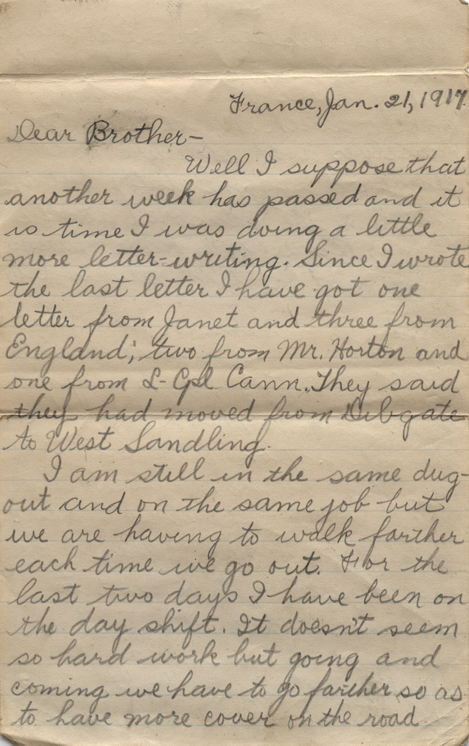 France, Jan. 21, 1917.
Dear Brother-
Well I suppose that
another week has passed and it
is time I was doing a little
more letter-writing. Since I wrote
the last letter I have got one
letter from Janet and three from
England; two from Mr. Horton and
one from L-Cpl Cann. They said
they had moved from Dibgate
to West Sandling.
I am still in the same dug-
out and on the same job but
we are having to walk farther
each time we go out. For the
last two days I have been on
the day shift. It doesn't seem
so hard work but going and
coming we have to go farther so as
to have more cover on the road.